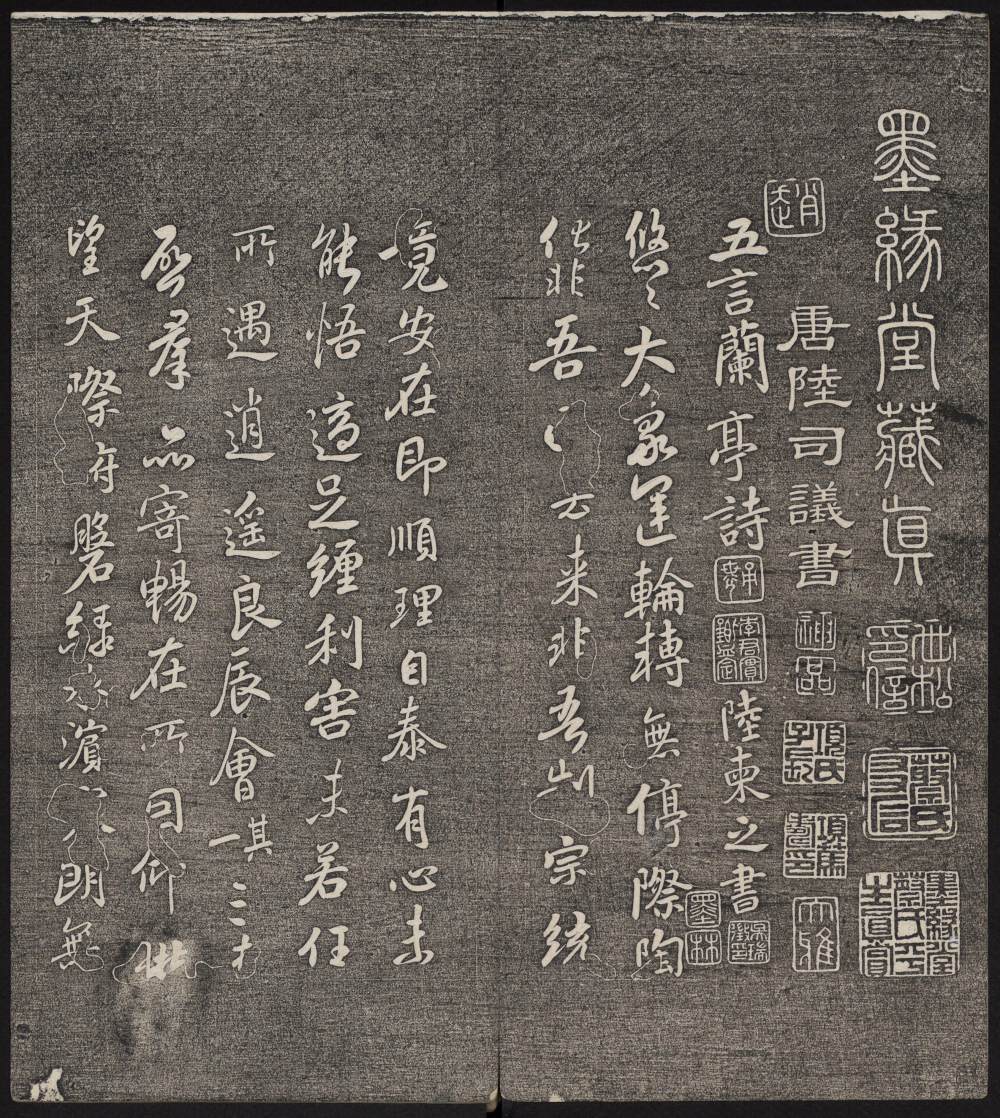 墨緣堂藏真
唐陸司議書
神品
大雅
五言蘭亭詩
李君實鑒定
陸柬之書
墨林
悠〻大象運輪轉無停際陶
化非吾去来非吾制宗統
竟安在即順理自泰有心未
能悟適足纏利害未若任
所遇逍遥良辰會其一三
啓羣品寄暢在所因仰
望天際俯磐緑水濱朗無